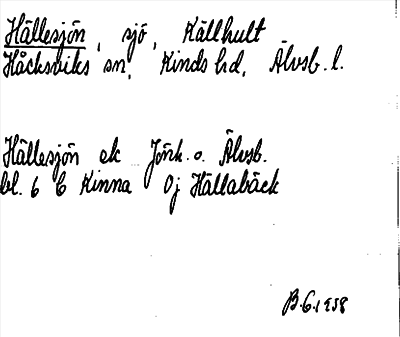 Hällesjön, sjö, Källhult
Håcksviks sn, Kinds hd, Älvsb. l.
Hällesjön ek Jönk. o. Älvsb.
bl. 6 C Kinna 0j Hällabäck
B.G. 1958